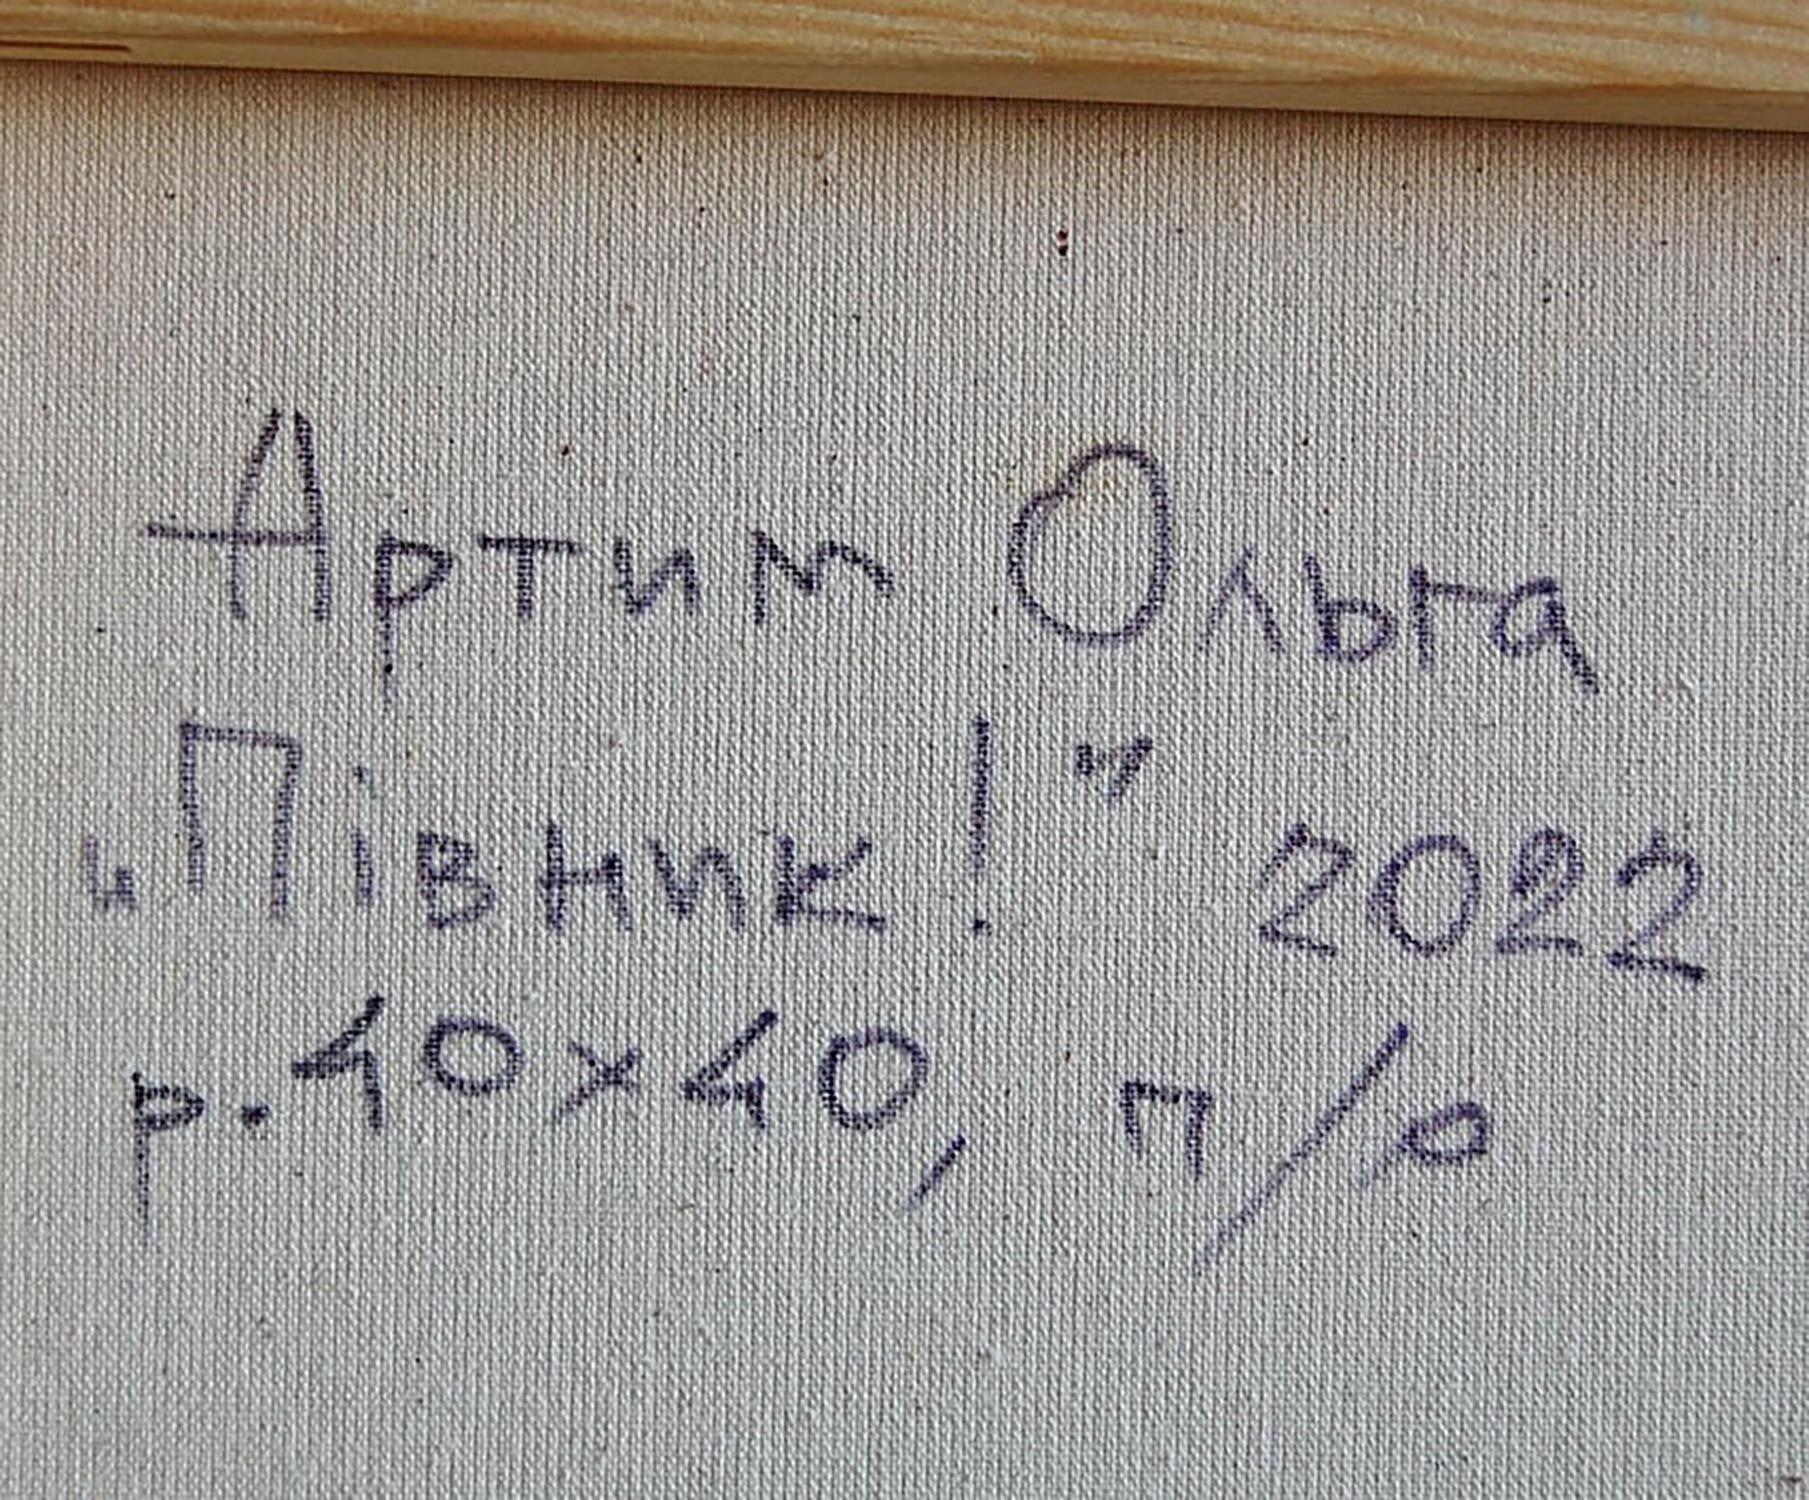 Артим Ольга
„Півник!” 2022
р. 40х40, п/о